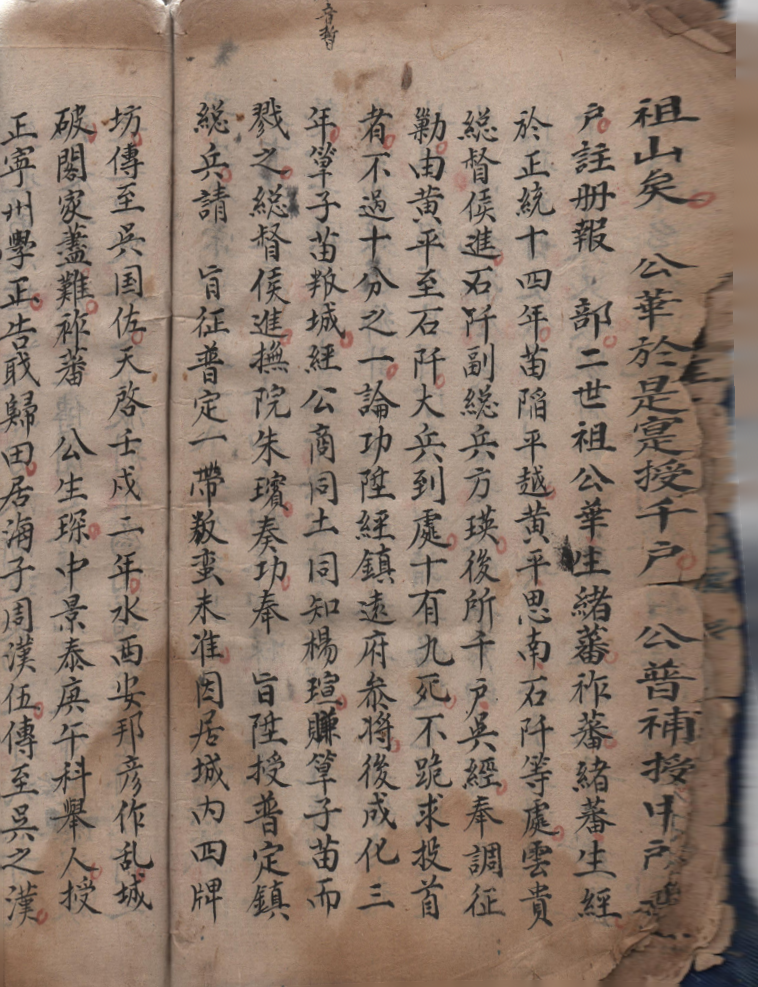 音哲
祖山矣 公華於是寔授千戶 公普補授
戶註册報 部二世祖公華生緒蕃祚蕃緒蕃生經
於正統十四年苗陷平越黄平思南石阡等處雲貴
総督侯進石阡副総兵方瑛後所千户吳經奉調征
勦由黄平至石阡大兵到處十有九死不跪求投首
者不過十分之一論功陞經鎮遠府叅将後成化三
年箪子苗叛城經公商同土同知楊瑄賺箪子苗而
戮之総督侯進撫院朱璸奏功奉 旨陞授普定鎮
総兵請 旨征普定一帶叛蛮未准因居城内四牌
坊傳至吳国佐天啓壬戍二年水西安邦彦作乱城
破閤家盡難祚蕃 公生琛中景泰庚午科舉人授
正寧州學正告職歸田居海子周漢伍傳至吳之漢